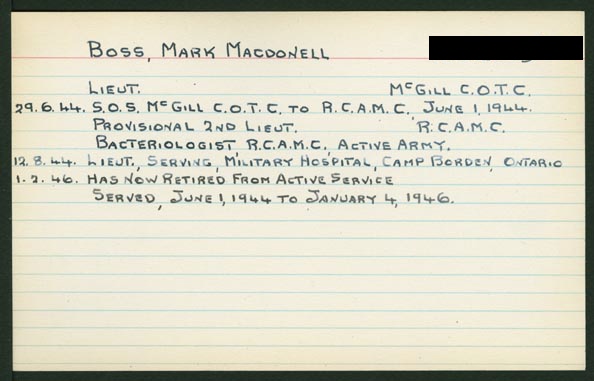 BOSS, MARK MACDONELL
LIEUT. McGILL C.O.T.C.
29.6.44. S.O.S. McGILL C.O.T.C. TO R.C.A.M.C. JUNE 1, 1944.
PROVISIONAL 2ND LIEUT. R.C.A.M.C.
BACTERIOLOGIST R.C.A.M.C., ACTIVE ARMY.
12.8.44. LIEUT., SERVING, MILITARY HOSPITAL, CAMP BORDEN, ONTARIO
1.2.46. HAS NOW RETIRED FROM ACTIVE SERVICE
SERVED, JUNE 1, 1944 TO JANUARY 4, 1946.